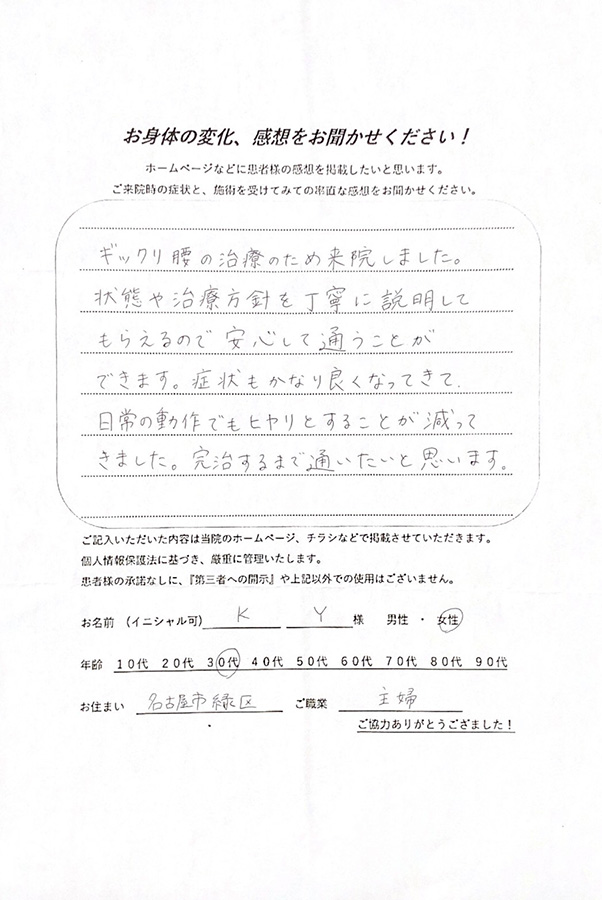 お身体の変化、感想をお聞かせください！
ホームページなどに患者様の感想を掲載したいと思います。
ご来院時の症状と、施術を受けてみての率直な感想をお聞かせください。
ギックリ腰の治療のため来院しました。
状態や治療方針を丁寧に説明して
もらえるので安心して通うことが
できます。症状もかなり良くなってきて、
日常の動作でもヒヤリとすることが減って
きました。完治するまで通いたいと思います。
ご記入いただいた内容は当院のホームページ、チラシなどで掲載させていただきます。
個人情報保護法に基づき、厳重に管理いたします。
患者様の承諾なしに、『第三者への開示』や上記以外での使用はございません。
お名前 (イニシャル可) K Y 様 男性 ・ 女性
年齢 10代 20代 30代 40代 50代 60代 70代 80代 90代
お住まい 名古屋市緑区 ご職業 主婦
ご協力ありがとうござました！